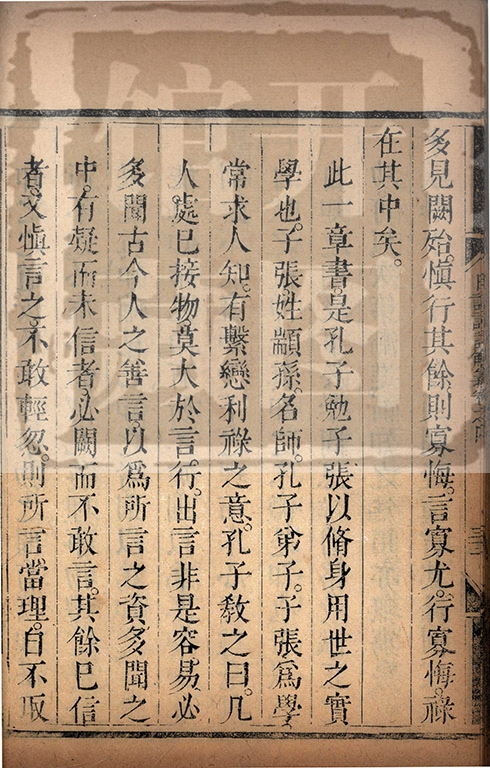 多見闕殆。慎行其餘。則寡悔。言寡尤。行寡悔。祿
在其中矣。
此一章書。是孔子勉子張以脩身用世之實
學也。子張。姓顓孫。名師。孔子弟子。子張爲學。
常求人知。有繫戀利祿之意。孔子教之曰。凡
人處已接物。莫大於言行。出言非是容易。必
多聞古今人之善言。以爲所言之資。多聞之
中。有疑而未信者。必闕而不敢言。其餘已信
者。又慎言之。不敢輕忽。則所言當理。自不取